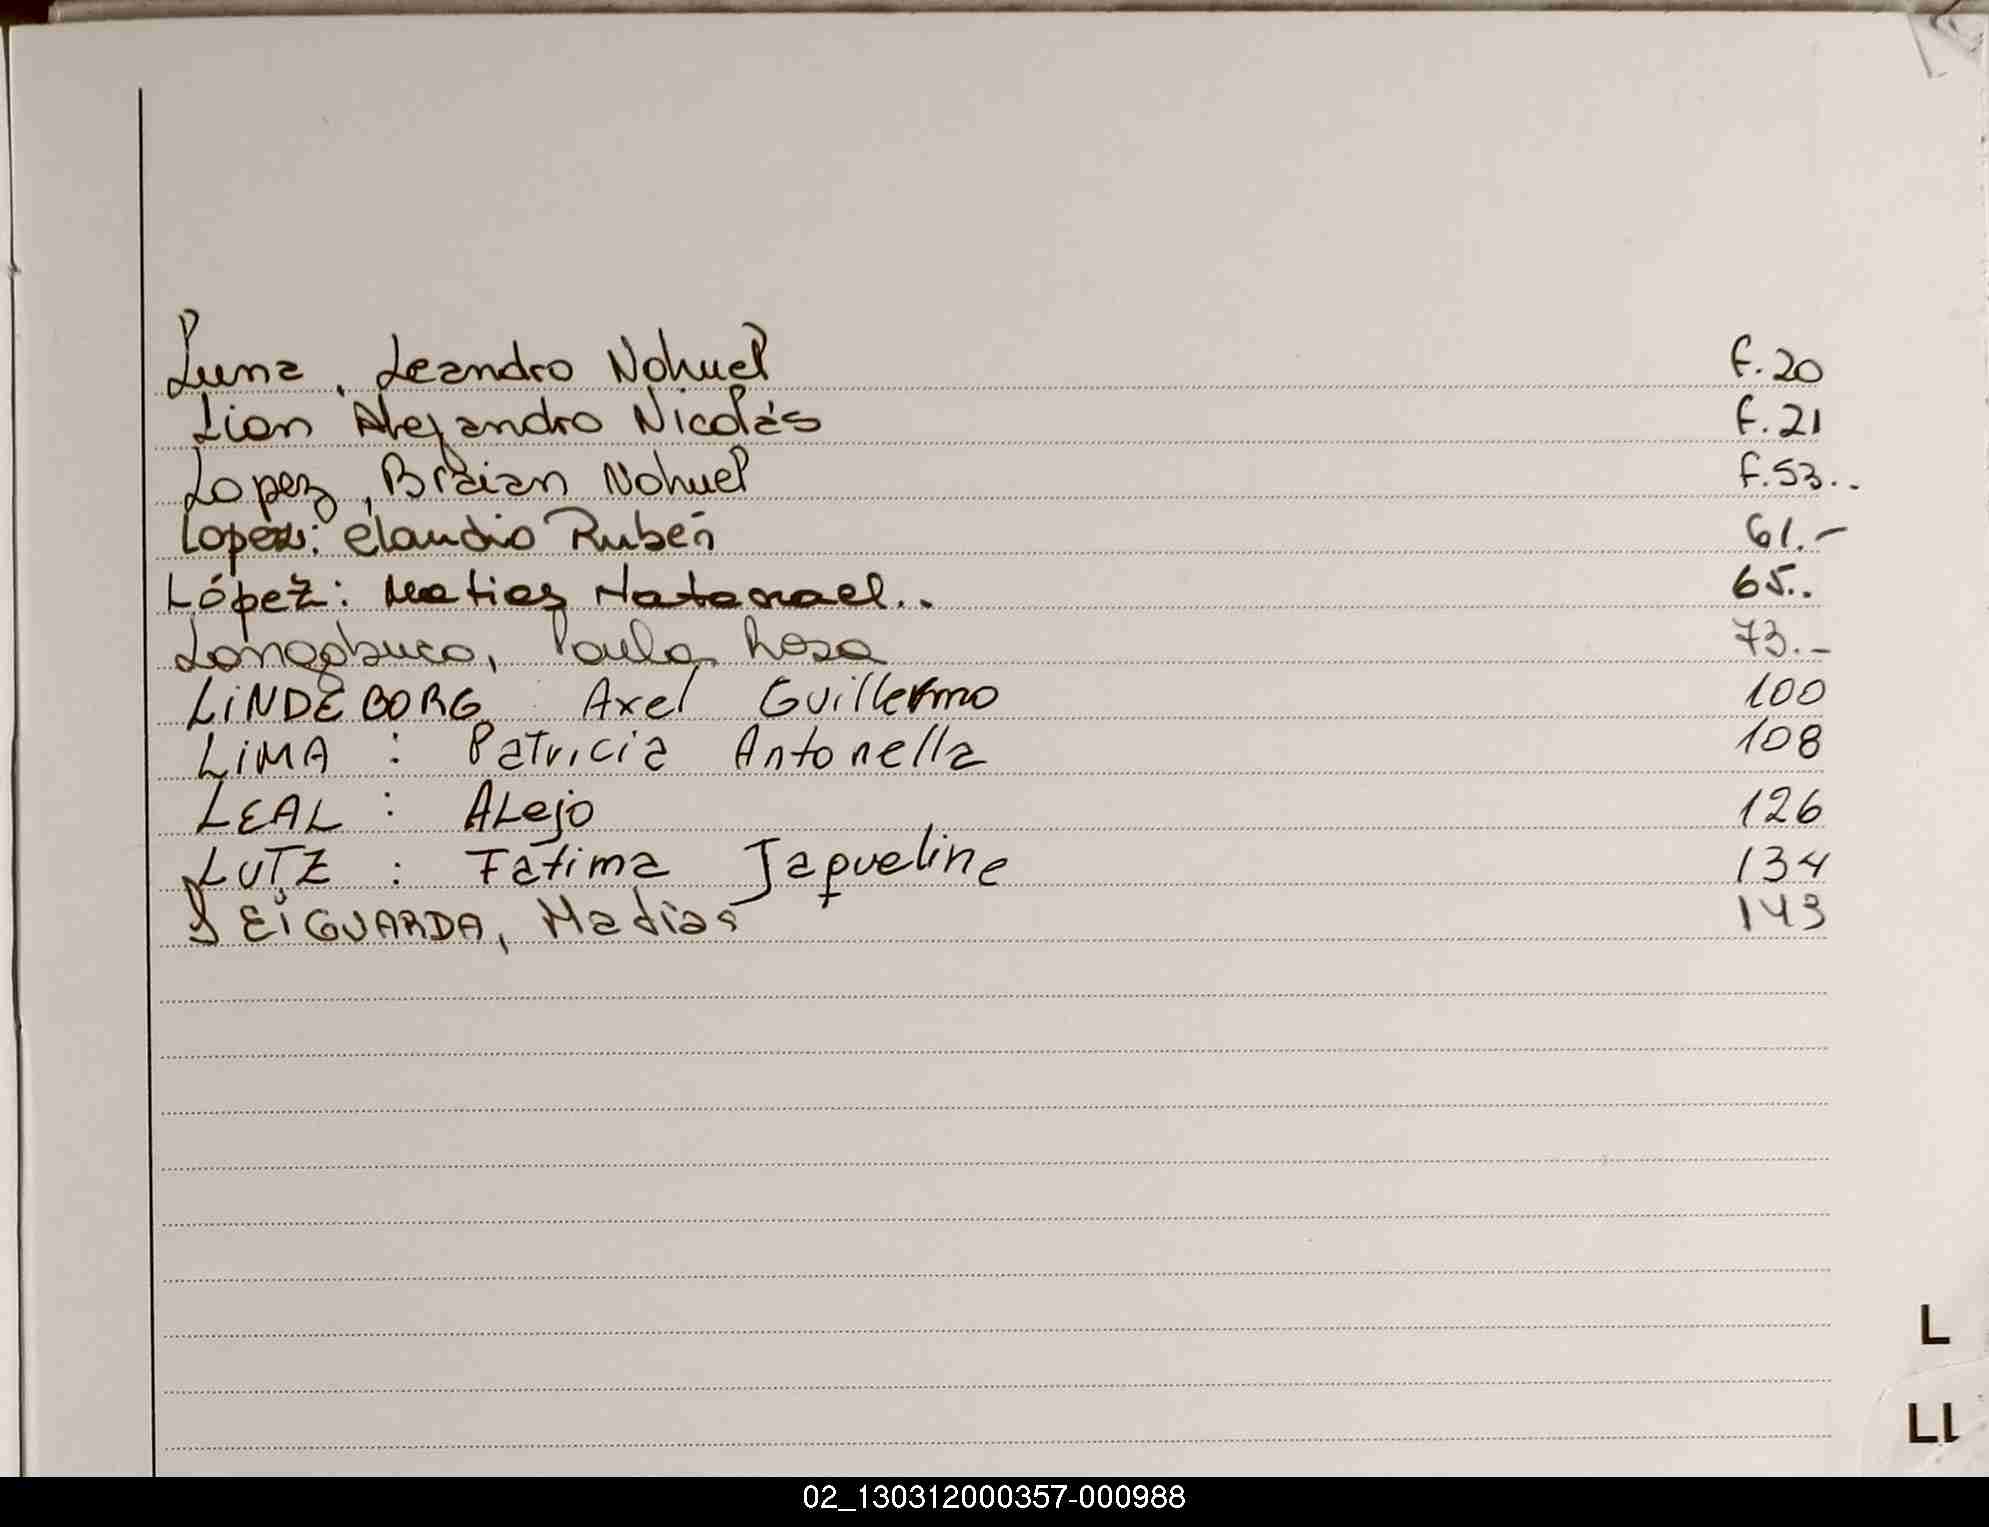 Luna, Leandro Nahuel F.20
Lion Alejandro Nicolás F.21
Lopez, Braian Nahuel F.53..
Lopez: Claudio Rubén 61.-
López: Matias Natanael.. 65..
Longobuco, Paula Rosa 73.-
LINDEBORG, Axel Guillermo 100
LIMA : Patricia Antonella 108
LEAL : ALejo 126
LUTZ : Fátima Jaqueline 134
LEIGUARDA, Matías 143
L
LL
02_130312000357-000988